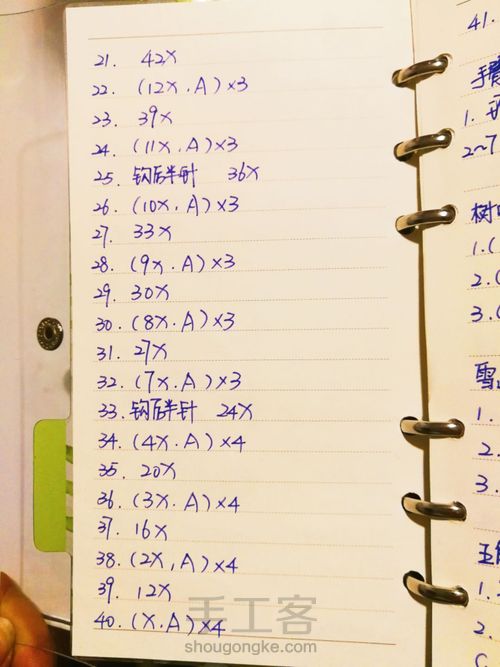 21. 42X
22. (12X.A)×3
23. 39X
24. (11X.A)×3
25. 钩后半针 36X
26. (10X.A)×3
27. 33X
28. (9X.A)×3
29. 30X
30. (8X.A)×3
31. 27X
32. (7X.A)×3
33. 钩后半针 24X
34. (4X.A)×4
35. 20X
36. (3X.A)×4
37. 16X
38. (2X,A)×4
39. 12X
40. (X.A)×4
手工客
shougongke.com
41.
手臂
1.
2~7
树
1.(
2.(
3.(
雪
1.
2.
3.
五角
1.
2.